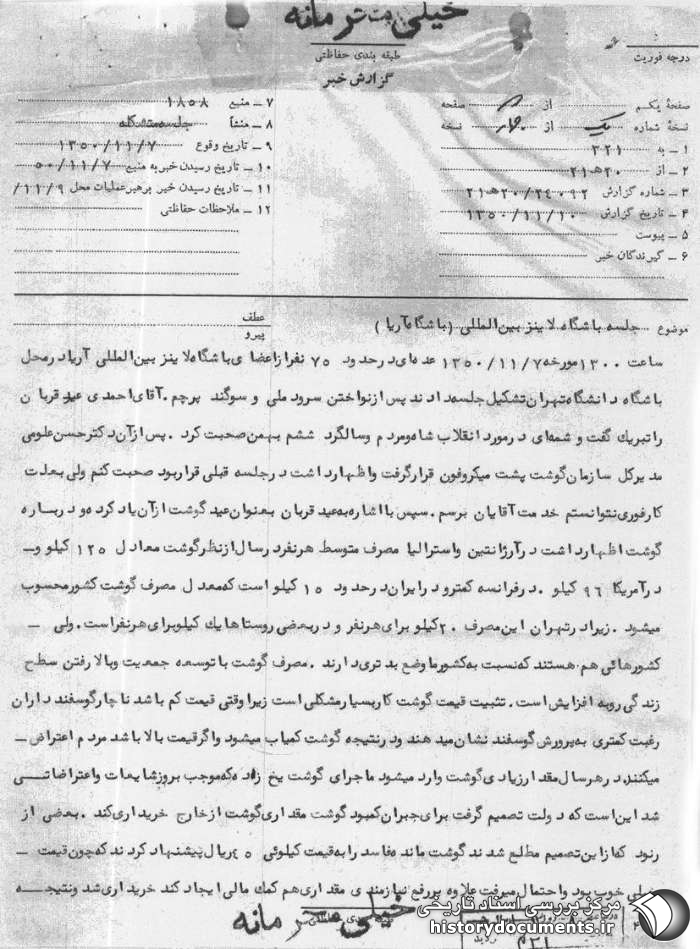 خیلی محرمانه
طبقه بندی حفاظتی
گزارش خبر
درجه فوریت
صفحهٔ یکم از صفحه
نسخهٔ شماره یک از چهار نسخه
۱ ـ به ۳۲۱
۲ ـ از ۲۰هـ۲۱
۳ ـ شماره گزارش ۲۰/۲۴۰۹۲هـ۲۱
۴ ـ تاریخ گزارش ۱۳۵۰/۱۱/۱۰
۵ ـ پیوست
۶ ـ گیرندگان خبر
۷ ـ منبع ۱۸۵۸
۸ ـ منشأ جلسه متشکله
۹ ـ تاریخ وقوع ۱۳۵۰/۱۱/۷
۱۰ ـ تاریخ رسیدن خبر به منبع ۵۰/۱۱/۷
۱۱ ـ تاریخ رسیدن خبر برهبر عملیات محل ۱۱/۹/
۱۲ ـ ملاحظات حفاظتی
موضوع جلسه باشگاه لاینز بین‌المللی (باشگاه آریا)
عطف
پیرو
ساعت ۱۳۰۰ مورخه ۱۳۵۰/۱۱/۷ عده‌ای در حدود ۷۵ نفر از اعضای باشگاه لاینز بین المللی آریا در محل
باشگاه دانشگاه تهران تشکیل جلسه دادند پس از نواختن سرود ملی و سوگند پرچم. آقای احمدی عید قربان
را تبریک گفت و شمه‌ای در مورد انقلاب شاه و مردم و سالگرد ششم بهمن صحبت کرد. پس از آن دکتر حسن علومی
مدیر کل سازمان گوشت پشت میکروفون قرار گرفت و اظهار داشت در جلسه قبلی قرار بود صحبت کنم ولی بعلت
کار فوری نتوانستم خدمت آقایان برسم. سپس با اشاره به عید قربان بعنوان عید گوشت از آن یاد کرده و درباره
گوشت اظهار داشت در آرژانتین و استرالیا مصرف متوسط هر نفر در سال از نظر گوشت معادل ۱۲۵ کیلو و ـ
در آمریکا ۹۶ کیلو. در فرانسه کمتر و در ایران در حدود ۱۵ کیلو است که معدل مصرف گوشت کشور محسوب
میشود. زیرا در تهران این مصرف ۲۰ کیلو برای هر نفر و در بعضی روستاها یک کیلو برای هر نفر است. ولی ـ
کشورهائی هم هستند که نسبت به کشور ما وضع بدتری دارند. مصرف گوشت با توسعه جمعیت و بالا رفتن سطح
زندگی رو به افزایش است. تثبیت قیمت گوشت کار بسیار مشکلی است زیرا وقتی قیمت کم باشد ناچار گوسفند داران
رغبت کمتری به پرورش گوسفند نشان میدهند و در نتیجه گوشت کمیاب میشود و اگر قیمت بالا باشد مردم اعتراض ـ
میکنند. در هر سال مقدار زیادی گوشت وارد میشود ماجرای گوشت یخ زده که موجب بروز شایعات و اعتراضاتی
شد این است که دولت تصمیم گرفت برای جبران کمبود گوشت مقداری گوشت از خارج خریداری کند. بعضی از
رنود که از این تصمیم مطلع شدند گوشت مانده فاسد را به قیمت کیلوئی ۴۵ ریال پیشنهاد کردند که چون قیمت ـ
خیلی خوب بود و احتمال میرفت علاوه بر رفع نیازمندی مقداری هم کمک مالی ایجاد کند خریداری شد و نتیجه
خیلی محرمانه
مرکز بررسی اسناد تاریخی
historydocuments.ir